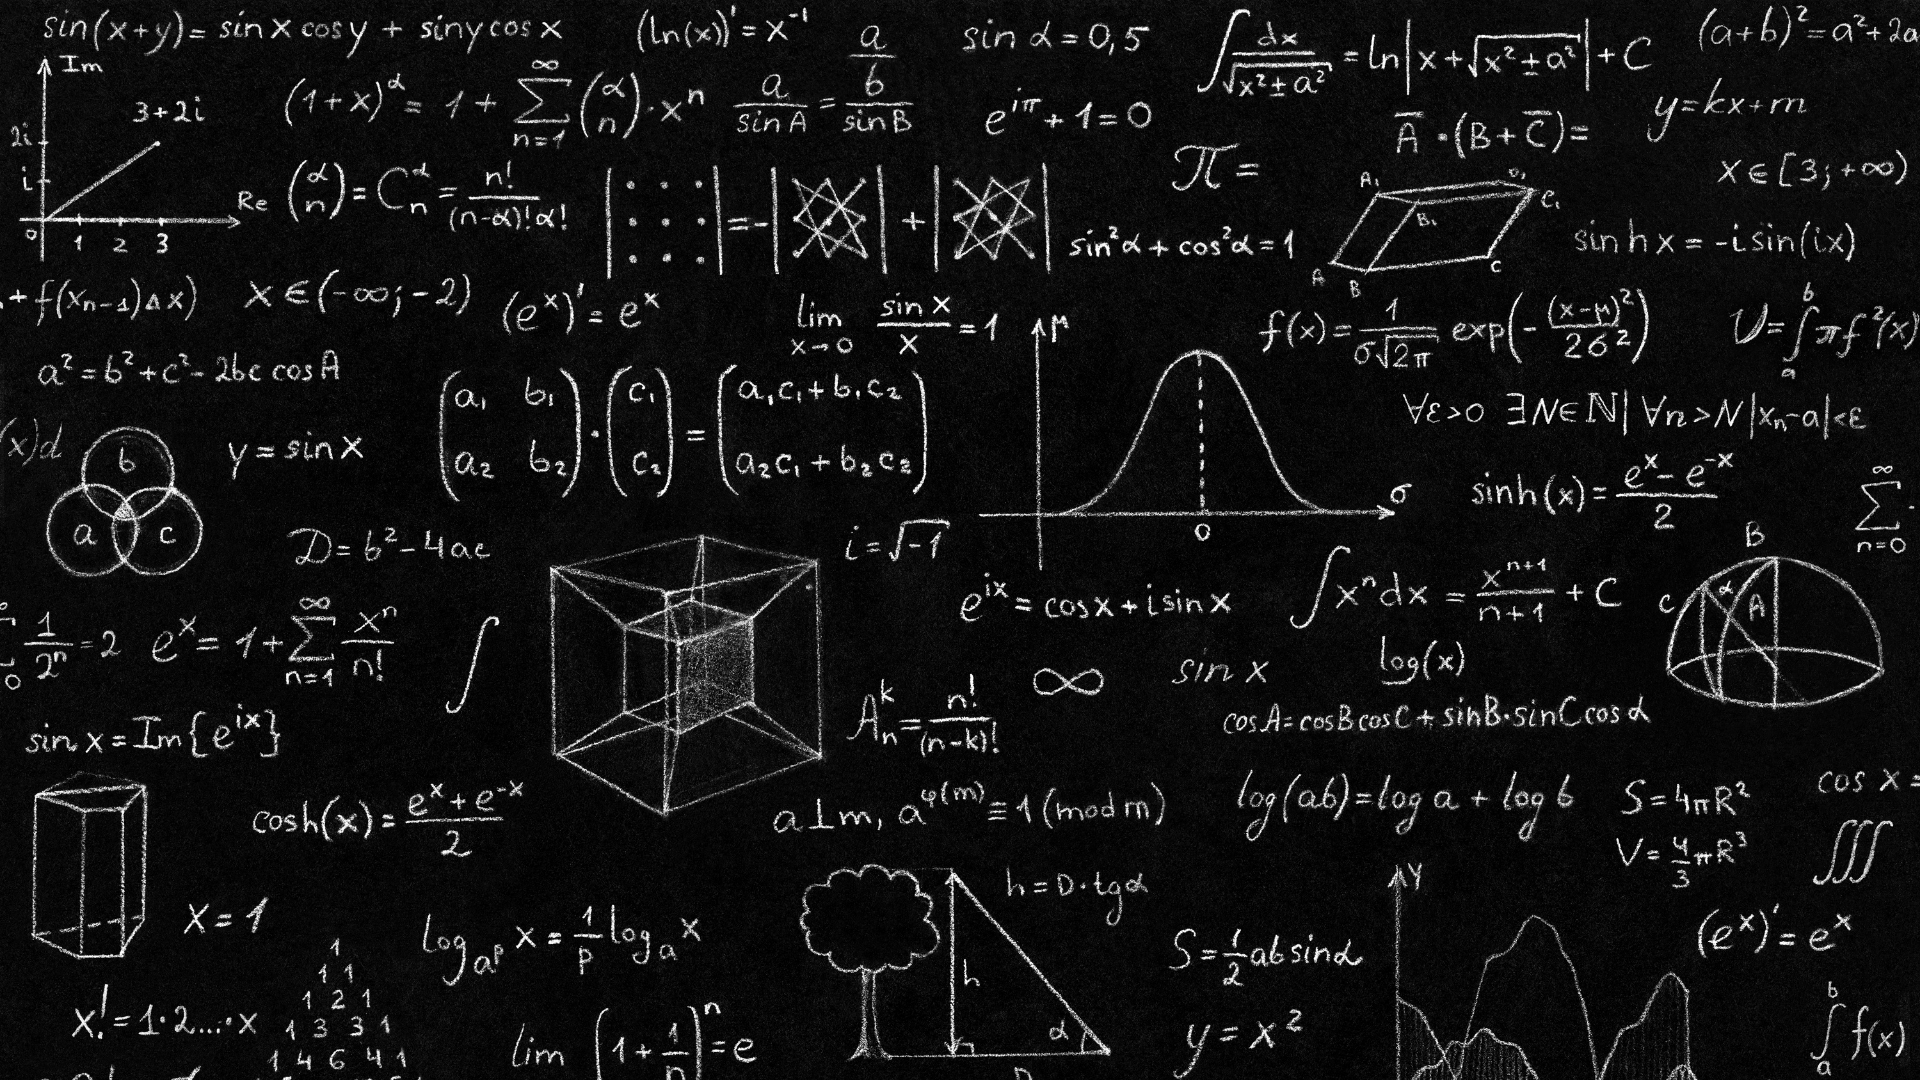 sin(x+y)= sin x cos y + sin y cos x
(ln(x))' = x⁻¹
a/b
sin α = 0,5
∫ dx/√(x²±a²) = ln|x+√(x²±a²)| + C
(a+b)² = a²+2a
Im
3+2i
2i
i
0 1 2 3
Re
(1+x)^α = 1 + ∑_{n=1}^{∞} (α n)·xⁿ
a/sin A = b/sin B
e^{iπ} + 1 = 0
A̅ · (B + C̅) =
y=kx+m
π =
x ∈ [3; +∞)
(α n) = C_n^α = n!/((n-α)!α!)
= - +
sin²α + cos²α = 1
A₁
B₁
C₁
A
B
C
sin h x = -i sin(ix)
+ f(x_{n-1})Δx)
x ∈ (-∞; -2)
(e^x)' = e^x
lim x→0 sin x/x = 1
μ
σ
0
f(x) = 1/(σ√2π) exp(-(x-μ)²/2σ²)
V = ∫_a^b πf²(x)
a² = b²+c² - 2bc cos A
(a₁ b₁ a₂ b₂) · (c₁ c₂) = (a₁c₁+b₁c₂ a₂c₁+b₂c₂)
∀ε>0 ∃N∈ℕ| ∀n>N |xₙ-a|<ε
(x)d
b
a c
y = sin x
sinh(x) = (e^x - e^{-x})/2
∑_{n=0}^{∞}
D = b² - 4ac
i = √-1
e^{ix} = cos x + i sin x
∫ xⁿdx = x^{n+1}/(n+1) + C
B
c
α
A
1/2ⁿ = 2
e^x = 1 + ∑_{n=1}^{∞} xⁿ/n!
∫
∞
sin x
log(x)
A_n^k = n!/(n-k)!
cos A = cos B cos C + sin B · sin C cos α
sin x = Im{e^{ix}}
cosh(x) = (e^x + e^{-x})/2
a⊥m, a^{φ(m)} ≡ 1 (mod m)
log(ab) = log a + log b
S = 4πR²
V = 4/3 πR³
cos x =
∭
x = 1
log_{a^p} x = 1/p log_a x
h = D · tg α
h
α
S = 1/2 ab sin α
y = x²
Y
(e^x)' = e^x
x! = 1·2...·x
1
1 1
1 2 1
1 3 3 1
1 4 6 4 1
lim (1 + 1/n)ⁿ = e
∫_a^b f(x)